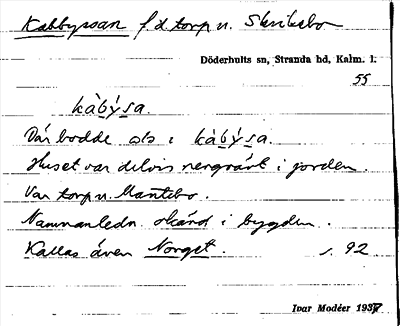 Kabbyssan f.d. torp u. Skrikebo
Döderhults sn, Stranda hd, Kalm. l.
55
kàbýsa.
Där bodde i kàbýsa.
Huset var delvis nergrävt i jorden.
Var torp u. Mantebo.
Namnanledn. okänd i bygden.
Kallas även Norget. s. 92
Ivar Modéer 1937